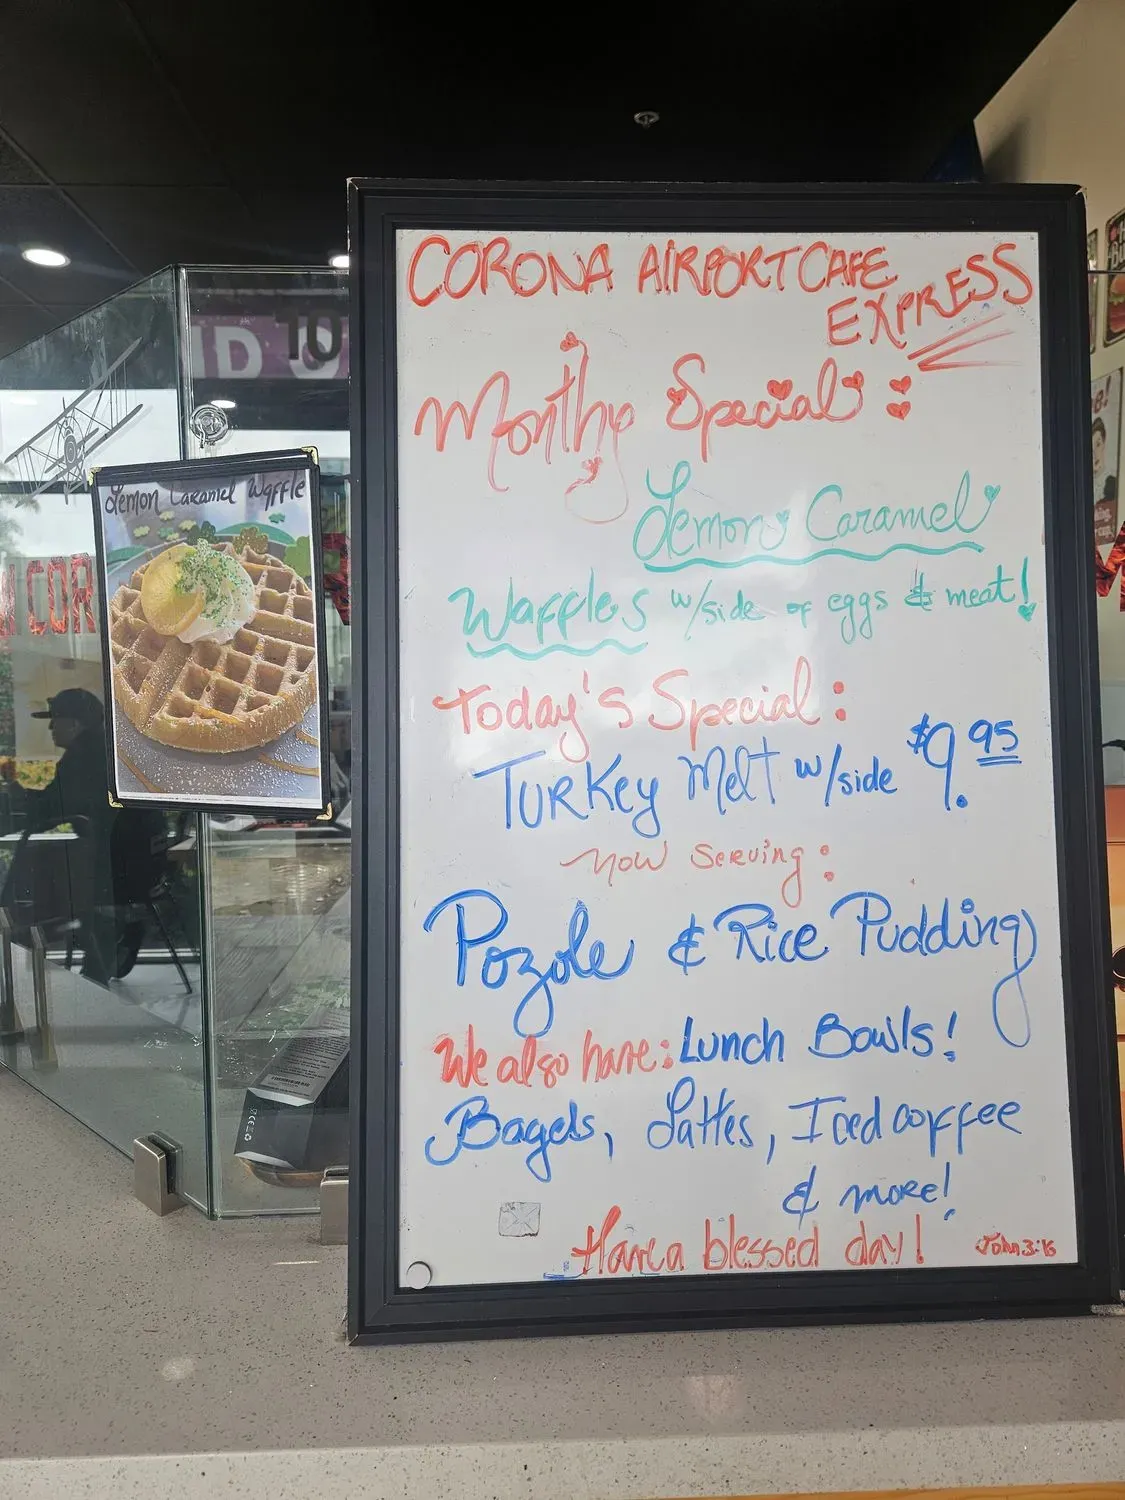 CORONA AIRPORT CAFE
EXPRESS
Monthy Special:
Lemon Caramel
Waffles w/side of eggs & meat!
Today's Special:
TURKEY Melt w/side $9.95
Now Serving:
Pozole & Rice Pudding
We also have: Lunch Bowls!
Bagels, Lattes, Iced coffee
& more!
Have a blessed day!
John 3:16
Lemon Caramel Waffle
COR
10